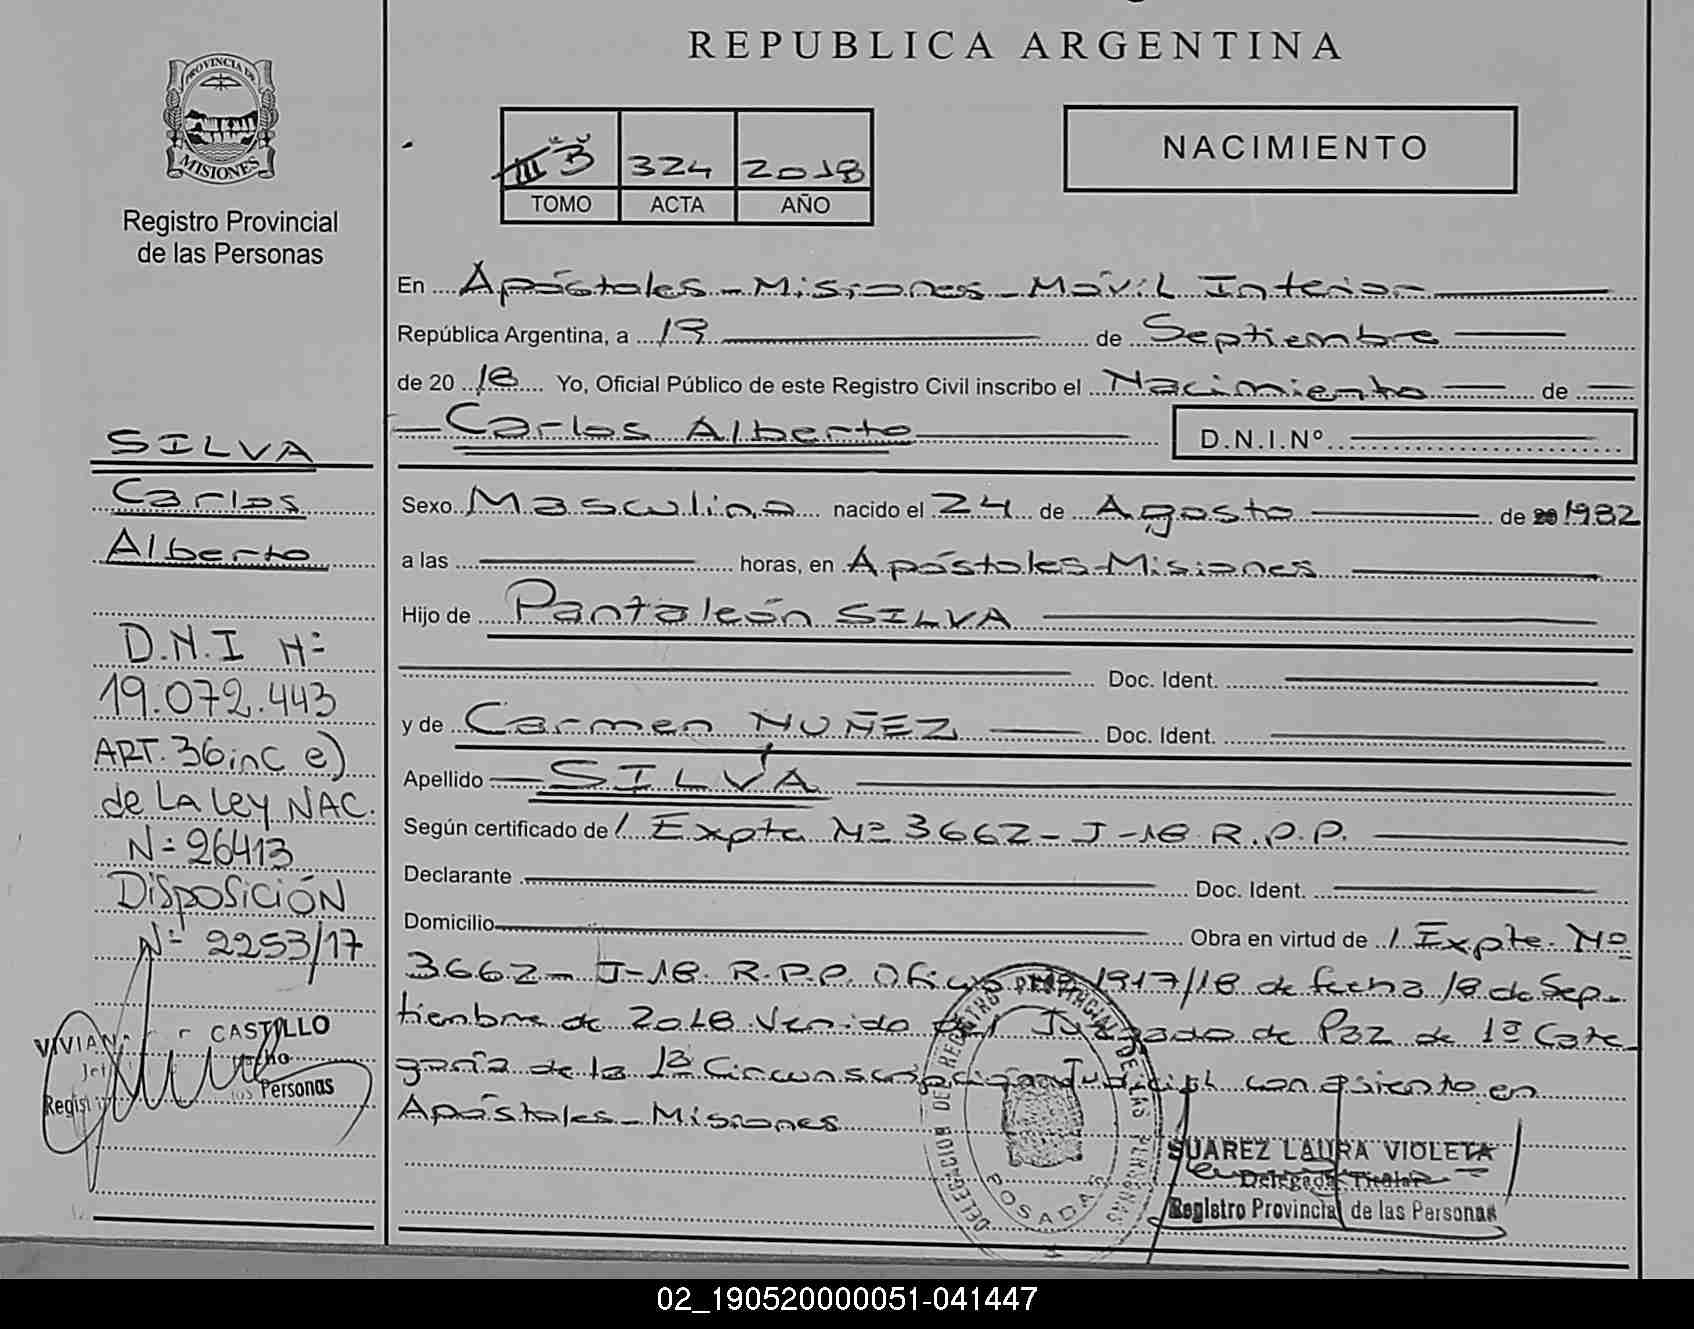 REPUBLICA ARGENTINA
PROVINCIA DE
MISIONES
Registro Provincial
de las Personas
III B 324 2018
TOMO ACTA AÑO
NACIMIENTO
En Apóstoles - Misiones - Móvil Interior
República Argentina, a 19 de Septiembre
de 20 18 Yo, Oficial Público de este Registro Civil inscribo el Nacimiento de
Carlos Alberto D.N.I.Nº
Sexo Masculino nacido el 24 de Agosto de 20 1982
a las horas, en Apóstoles-Misiones
Hijo de Pantaleón SILVA
Doc. Ident.
y de Carmen NUÑEZ Doc. Ident.
Apellido SILVA
Según certificado de / Expte Nº 3662-J-18 R.P.P.
Declarante Doc. Ident.
Domicilio Obra en virtud de / Expte. Nº
3662- J-18 R.P.P. Oficio Nº 1917/18 de fecha 18 de Sep-
tiembre de 2018 Venido del Juzgado de Paz de 1ª Cate
goría de la 1ª Circunscripción Judicial con asiento en
Apóstoles-Misiones
SILVA
Carlos
Alberto
D.N.I Nº
19.072.443
ART. 36 inc e)
de La Ley NAC.
Nº 26413
Disposición
Nº 2253/17
CASTILLO
Personas
DELEGACION DE REGISTRO PROVINCIAL DE LAS PERSONAS
POSADAS
SUAREZ LAURA VIOLETA
Delegada Titular
Registro Provincial de las Personas
02_190520000051-041447